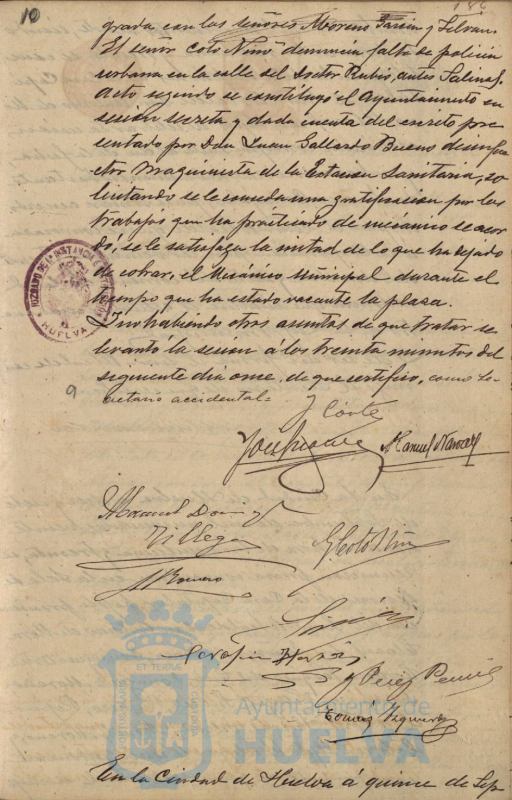 10
186
grada con los señores Moreno Garzón y Selvan.
El señor Coto Nino denuncia falta de policia
urbana en la calle del Doctor Rubio, antes Salinas.
Acto seguido se constituyó el Ayuntamiento en
sesión secreta y dada cuenta del escrito pre
sentado por Don Juan Gallardo Bueno desinfec
tor Maquinista de la Estacion Sanitaria, so
licitando se le conceda una gratificacion por los
trabajos que ha practicado de mecanico se acor
dó, se le satisfaga la mitad de lo que ha dejado
de cobrar, el Mecánico Municipal durante el
tiempo que ha estado vacante la plaza.
Y no habiendo otros asuntos de que tratar se
levantó la sesion á los treinta minutos del
siguiente dia once, de que certifico, como Se
cretario accidental=
HUELVA
Y Corte
Manuel Narvaez
Manuel Doming
Villega
G Coto Niño
M Romero
Serafin
y Perez
Tomas Izquierdo
Ayuntamiento de
HUELVA
En la Ciudad de Huelva á quince de Sep